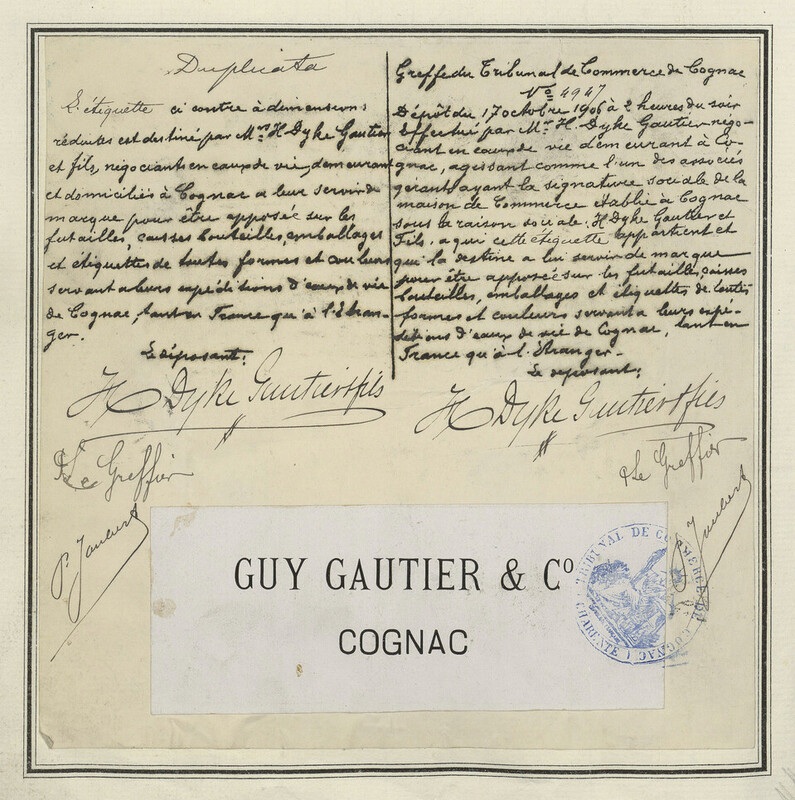 Duplicata
L'étiquette ci contre à dimensions
réduites est destiné par Mrs H. Dyke Gautier
et fils, négociants en eaux de vie, demeurant
et domiciliés à Cognac a leur servir de
marque pour être apposée sur les
futailles, caisses bouteilles, emballages
et étiquettes de toutes formes et couleurs
servant a leurs expéditions d'eaux de vie
de Cognac, tant en France qu'à l'étran-
ger.
Le déposant:
H Dyke Gautier & fils
Le Greffier
P. Joubert
Greffe du Tribunal de Commerce de Cognac
No 4947
Dépôt du 17 octobre 1906 à 2 heures du soir
Effectué par Mr H. Dyke Gautier négo-
ciant en eaux de vie demeurant à Co-
gnac, agissant comme l'un des associés
gérants ayant la signature sociale de la
maison de Commerce établie à Cognac
sous la raison sociale. H Dyke Gautier et
Fils, a qui cette étiquette appartient et
qui la destine a lui servir de marque
pour être apposé sur les futailles, caisses
bouteilles, emballages et étiquettes de toutes
formes et couleurs servant a leurs expé-
ditions d'eaux de vie de Cognac, tant en
France qu'à l'Etranger.
Le déposant:
H Dyke Gautier & fils
Le Greffier
Joubert
GUY GAUTIER & Co
COGNAC
TRIBUNAL DE COMMERCE DE COGNAC
CHARENTE